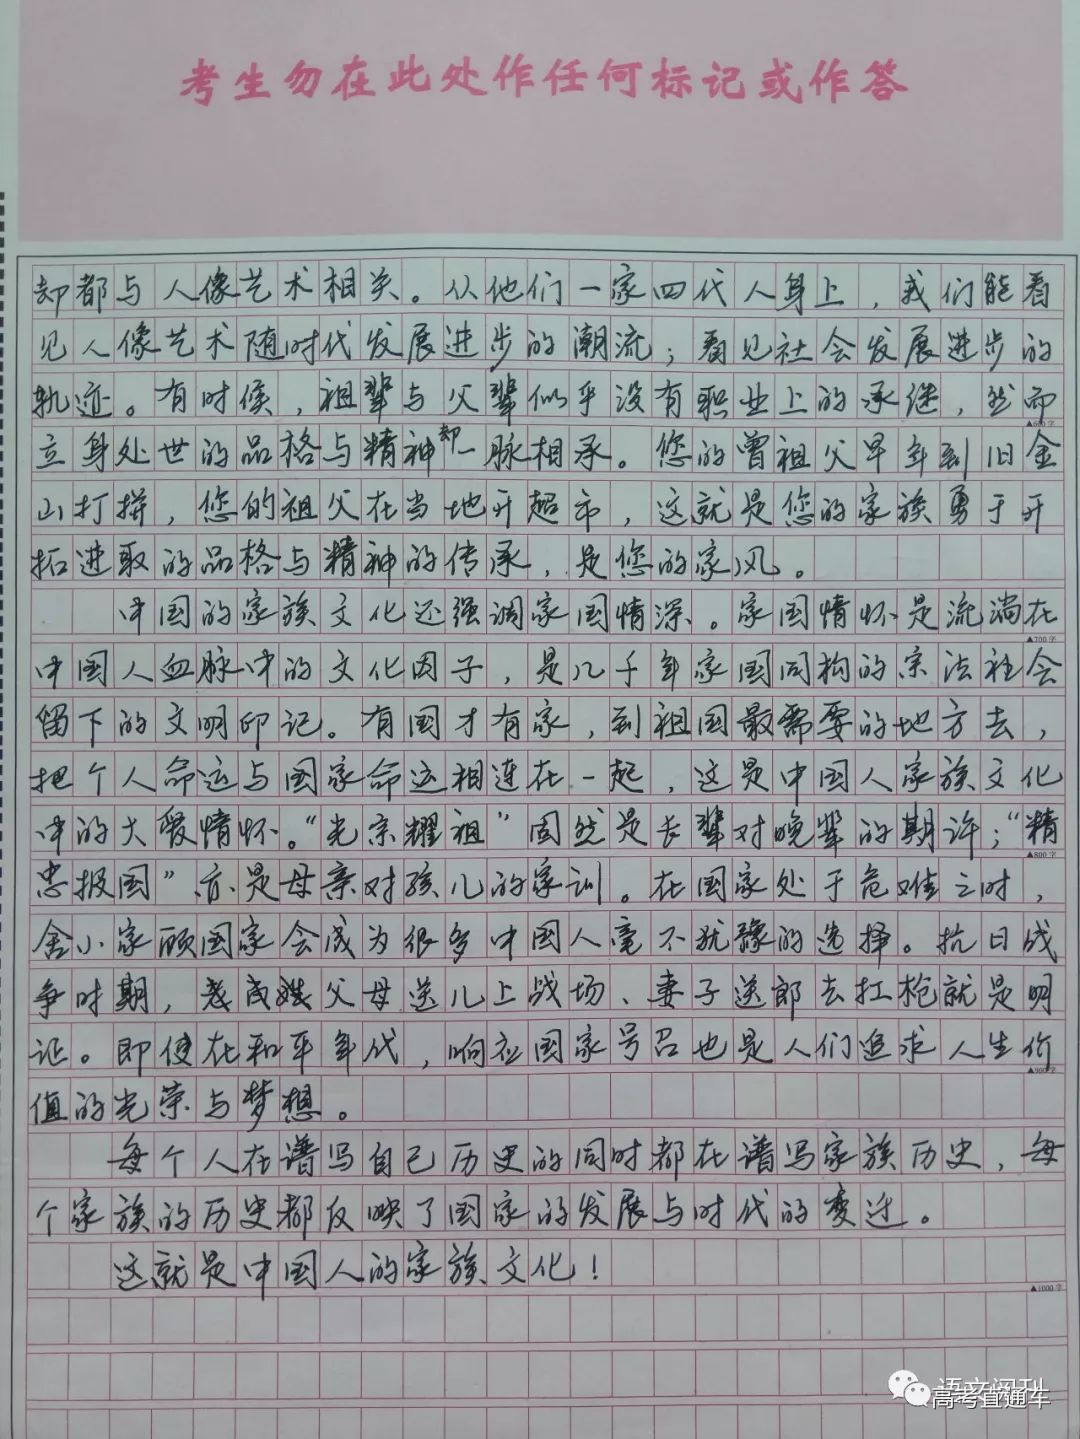 考生勿在此处作任何标记或作答
却都与人像艺术相关。从他们一家四代人身上，我们能看
见人像艺术随时代发展进步的潮流；看见社会发展进步的
轨迹。有时候，祖辈与父辈似乎没有职业上的承继，然而
▲600字
立身处世的品格与精神却一脉相承。您的曾祖父早年到旧金
山打拼，您的祖父在当地开超市，这就是您的家族勇于开
拓进取的品格与精神的传承，是您的家风。
中国的家族文化还强调家国情深。家国情怀是流淌在
▲700字
中国人血脉中的文化因子，是几千年家国同构的宗法社会
留下的文明印记。有国才有家，到祖国最需要的地方去，
把个人命运与国家命运相连在一起，这是中国人家族文化
中的大爱情怀。“光宗耀祖”固然是长辈对晚辈的期许；“精
▲800字
忠报国”亦是母亲对孩儿的家训。在国家处于危难之时，
舍小家顾国家会成为很多中国人毫不犹豫的选择。抗日战
争时期，父母送儿上战场、妻子送郎去扛枪就是明
证。即使在和平年代，响应国家号召也是人们追求人生价
▲900字
值的光荣与梦想。
每个人在谱写自己历史的同时都在谱写家族历史，每
个家族的历史都反映了国家的发展与时代的变迁。
这就是中国人的家族文化！
▲1000字
语文阅刊
高考直通车